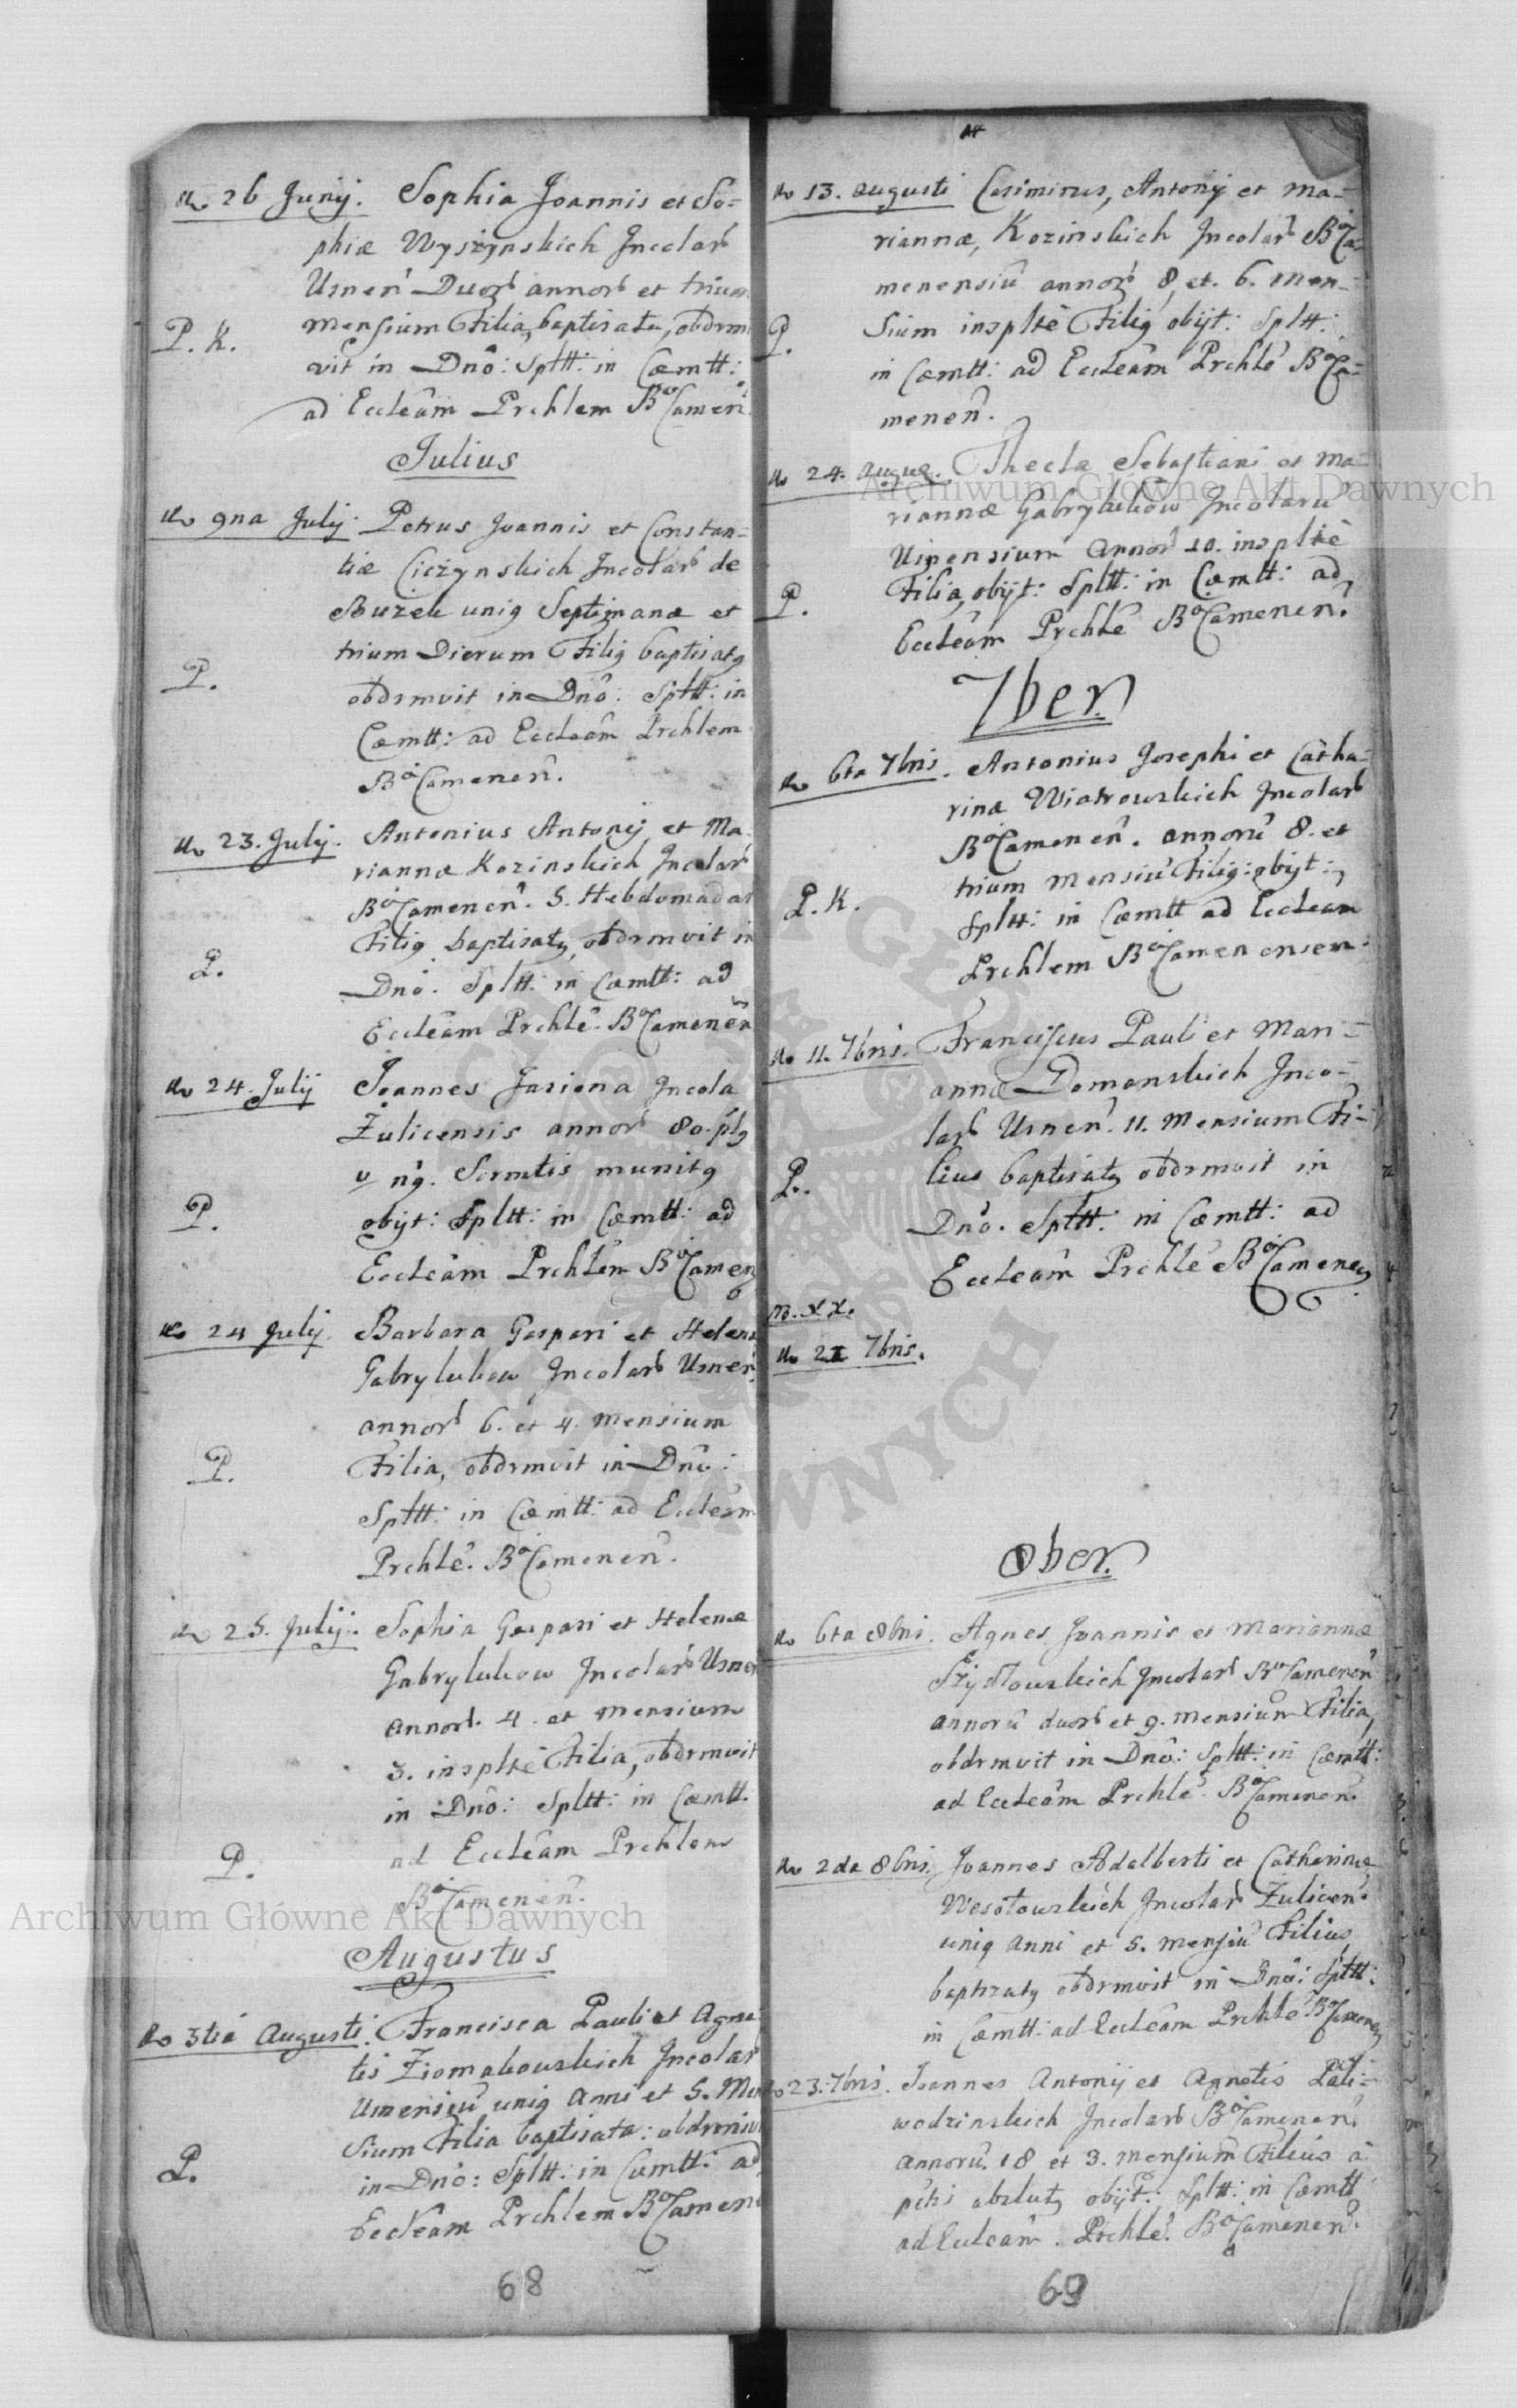 26 Junij. Sophia Joannis et So=
phiæ Wyszynskich Incolar
Usnen Duor annor et trium
P. K. mensium Filia, baptisata, obdrm
vit in Dno: Spltt: in Cœmtt:
ad Eccleam Prchlem BoCamen
Julius
9na Julij Petrus Joannis et Constan=
tiæ Cieżynskich Incolar de
Buzek uniq Septimanæ et
trium Dierum Filiq baptisatq
P. obdrmvit in Dno: Spltt: in
Cœmtt: ad Eccleam Prchlem
BoCamenen.
23. Julij. Antonius Antonij et Ma
riannæ Kozinskich Incolar
BoCamenen. 5. Hebdomadar
Filiq baptisatq, obdrmvit in
P. Dno. Spltt: in Cœmtt: ad
Eccleam Prchle. BoCamenen
24. Julij Joannes Jasiona Incola
Zulicensis annor 80. plq
v nq. Scrmtis munitq
P. obijt: Spltt: in Cœmtt: ad
Eccleam Prchlem BoCamen
24 Julij. Barbara Gaspari et Helenæ
Gabrylukow Incolar Usnen
annor 6. et 4. mensium
P. Filia, obdrmvit in Dno:
Spltt: in Cœmtt: ad Eccleam
Prchle. BoCamenen.
25. Julij. Sophia Gaspari et Helenæ
Gabrylukow Incolar Usnen
annor. 4. et mensium
3. insplte Filia, obdrmvit
in Dno: Spltt: in Cœmtt.
P. ad Eccleam Prchlem
BoCamenen.
Augustus
3tia Augusti. Francisca Pauli et Agne
tis Ziomakowskich Incolar
Usnensiu uniq Anni et 5. Men
sium Filia baptisata: obdrmiv
P. in Dno: Spltt: in Cœmtt: ad
Eccleam Prchlem BoCamen
68
13. augusti Casimirus, Antonij et Ma=
riannæ, Kozinskich Incolar BoCa=
menensiu annor 8, et. 6. Men=
P. sium insplte Filiq obijt: Spltt:
in Cœmtt: ad Eccleam Prchle BoCa=
menen.
24. Thecla Sebastiani et Ma=
riannæ Gabrylukow Incolaru
annor 10. insplte
P. Filia, obijt: Spltt: in Cœmtt: ad
Eccleam Prchle BoCamenen.
7ber.
6ta 7bris. Antonius Josephi et Catha=
rinæ Wiatrowskich Incolar
BoCamenen. annoru 8. et
trium mensiu Filiq: obijt:
P. K. Spltt: in Cœmtt ad Eccleam
Prchlem BoCamenensem.
11. 7bris. Franciscus Pauli et Mari=
annæ Domanskich Inco=
lar Usnen. 11. Mensium Fi=
P. lius baptisatq obdrmvit in
Dno. Spltt: in Cœmtt: ad
Eccleam Prchle BoCamenen
7bris.
8ber.
6ta 8bris. Agnes Joannis et Mariannæ
Szydłowskich Incolar BoCamenen
annoru duor et 9. mensium Filia,
obdrmvit in Dno: Spltt: in Cœmtt:
ad Eccleam Prchle BoCamenen.
2da 8bris. Joannes Adalberti et Catharinæ
Wesołowskich Incolar Zulicen.
uniq anni et 5. mensiu Filius,
baptizatq obdrmvit in Dno: Spltt:
in Cœmtt: ad Eccleam Prchle BoCamen
23. 7bris. Joannes Antonij et Agnetis
wodzinskich Incolar BoCamenen.
annoru. 18 et 3. mensium Filius a
pctis abslutq obijt: Spltt: in Cœmtt
ad Eccleam. Prchle. BoCamenen.
69
Archiwum Główne Akt Dawnych
Archiwum Główne Akt Dawnych